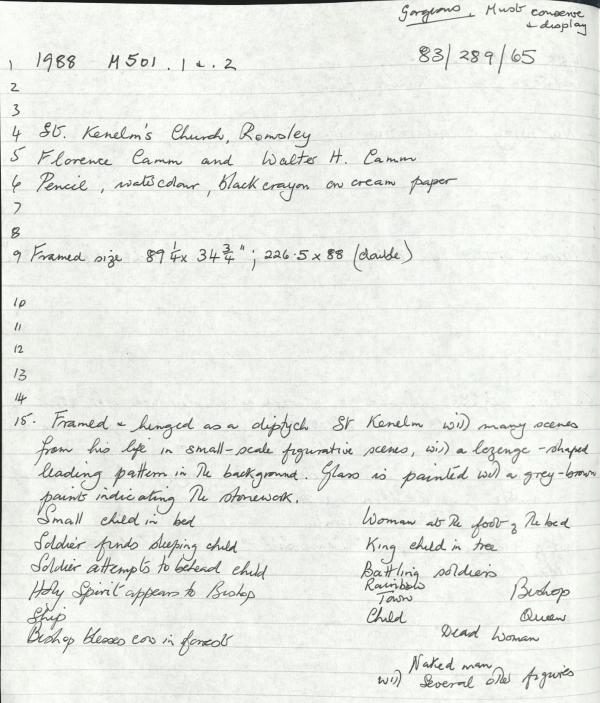 Gorgeous. Must conserve
& display
1 1988 M501.1 & .2 83/289/65
2
3
4 St. Kenelm's Church, Romsley
5 Florence Camm and Walter H. Camm
6 Pencil, watercolour, black crayon on cream paper
7
8
9 Framed size 89 1/4 x 34 3/4"; 226.5 x 88 (double)
10
11
12
13
14
15. Framed & hinged as a diptych St Kenelm with many scenes
from his life in small-scale figurative scenes, with a lozenge-shaped
leading pattern in the background. Glass is painted with a grey-brown
paint indicating the stonework.
Small child in bed Woman at the foot of the bed
Soldier finds sleeping child King child in tree
Soldier attempts to behead child Battling soldiers
Holy Spirit appears to Bishop Rainbow
Town Bishop
Ship Child Queen
Bishop blesses cow in forest Dead Woman
Naked man
with several other figures